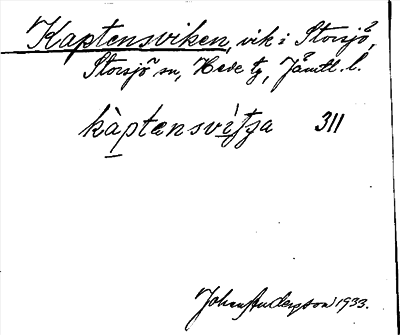 Kaptensviken, vik i Storsjö,
Storsjö sn, Hede tg, Jämtl. l.
kàptensvìtja 311
Johan Anderson 1933.